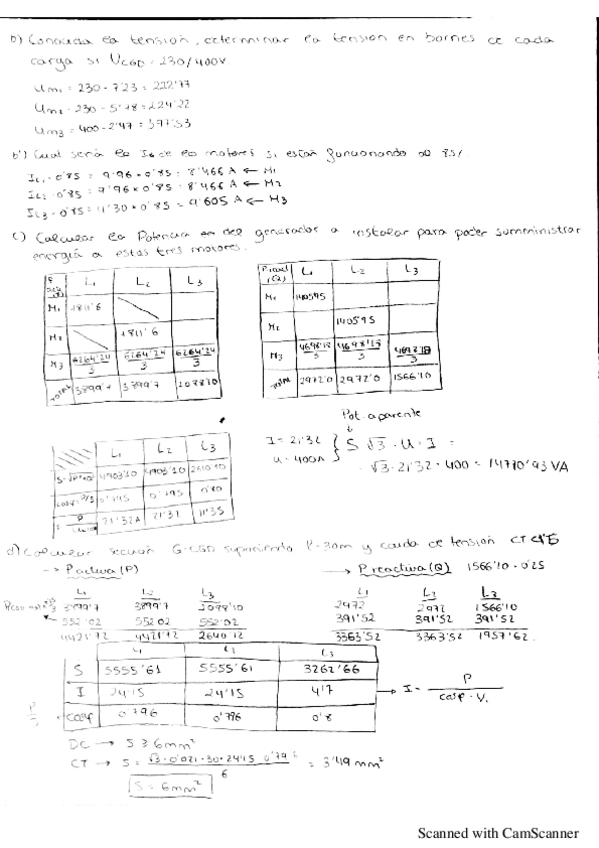 b) Conocida la tensión, determinar la tensión en bornes de cada
carga si UCGD = 230/400V
Um1 = 230 - 7'23 = 222'77
Um2 = 230 - 5'78 = 224'22
Um3 = 400 - 2'47 = 397'53
b') Cual será la de los motores si están funcionando al 85%
IL1 · 0'85 = 9'96 × 0'85 = 8'466 A ← M1
IL2 · 0'85 = 9'96 × 0'85 = 8'466 A ← M2
IL3 · 0'85 = × 0'85 = 9'605 A ← M3
c) Calcular la Potencia en del generador a instalar para poder sumministrar
energía a estos tres motores.
L1 L2 L3
M1 1811'6
M2 1811'6
M3 6264'24/3 6264'24/3 6264'24/3
TOTAL 3899'7 3899'7
L1 L2 L3
M1 1405'95
M2 1405'95
M3 4698'18/3 4698'18/3 4698'18/3
TOTAL 2972'0 2972'0 1566'10
Pot. aparente
L1 L2 L3
4903'10 4903'10 2610'10
0'795 0'795 0'80
21'32A 21'32 11'35
I = 21'32
U = 400A
S √3 · U · I =
√3 · 21'32 · 400 = 14770'93 VA
d) Calcular sección G-CGD suponiendo l=30m y caída de tensión CT
→ P activa (P)
→ P reactiva (Q) 1566'10 · 0'25
L1 L2 L3
3899'7 3899'7
552'02 552'02 552'02
4421'72 4421'72 2640'12
L1 L2 L3
2972 2972 1566'10
391'52 391'52 391'52
3363'52 3363'52 1957'62
L1 L2 L3
S 5555'61 5555'61 3262'66
I 24'15 24'15 4'7
cosφ 0'796 0'796 0'8
→ I = P / cosφ · V
DC → S ≥ 6mm²
CT → S = √3 · 0'021 · 30 · 24'15 · 0'79 / 6 = 3'49 mm²
S = 6mm²
Scanned with CamScanner